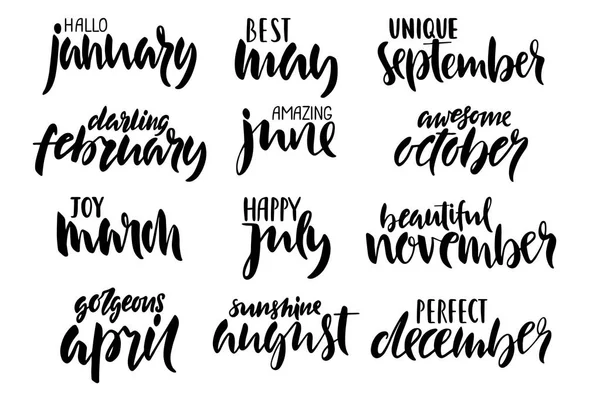 HALLO
january
darling
february
JOY
march
gorgeous
april
BEST
may
AMAZING
june
HAPPY
july
sunshine
august
UNIQUE
september
awesome
october
beautiful
november
PERFECT
december